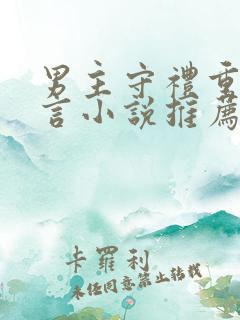 男主守禮重
言小說推薦
卡羅利
未经同意禁止转载